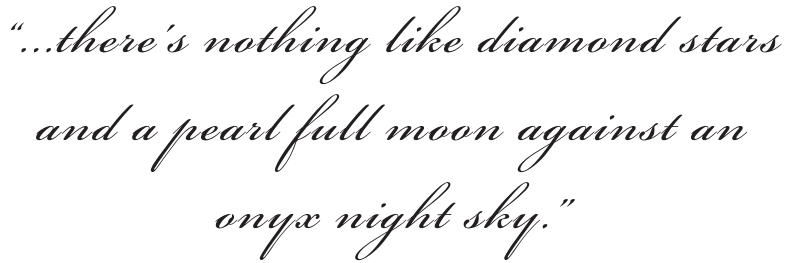 “...there's nothing like diamond stars
and a pearl full moon against an
onyx night sky.”